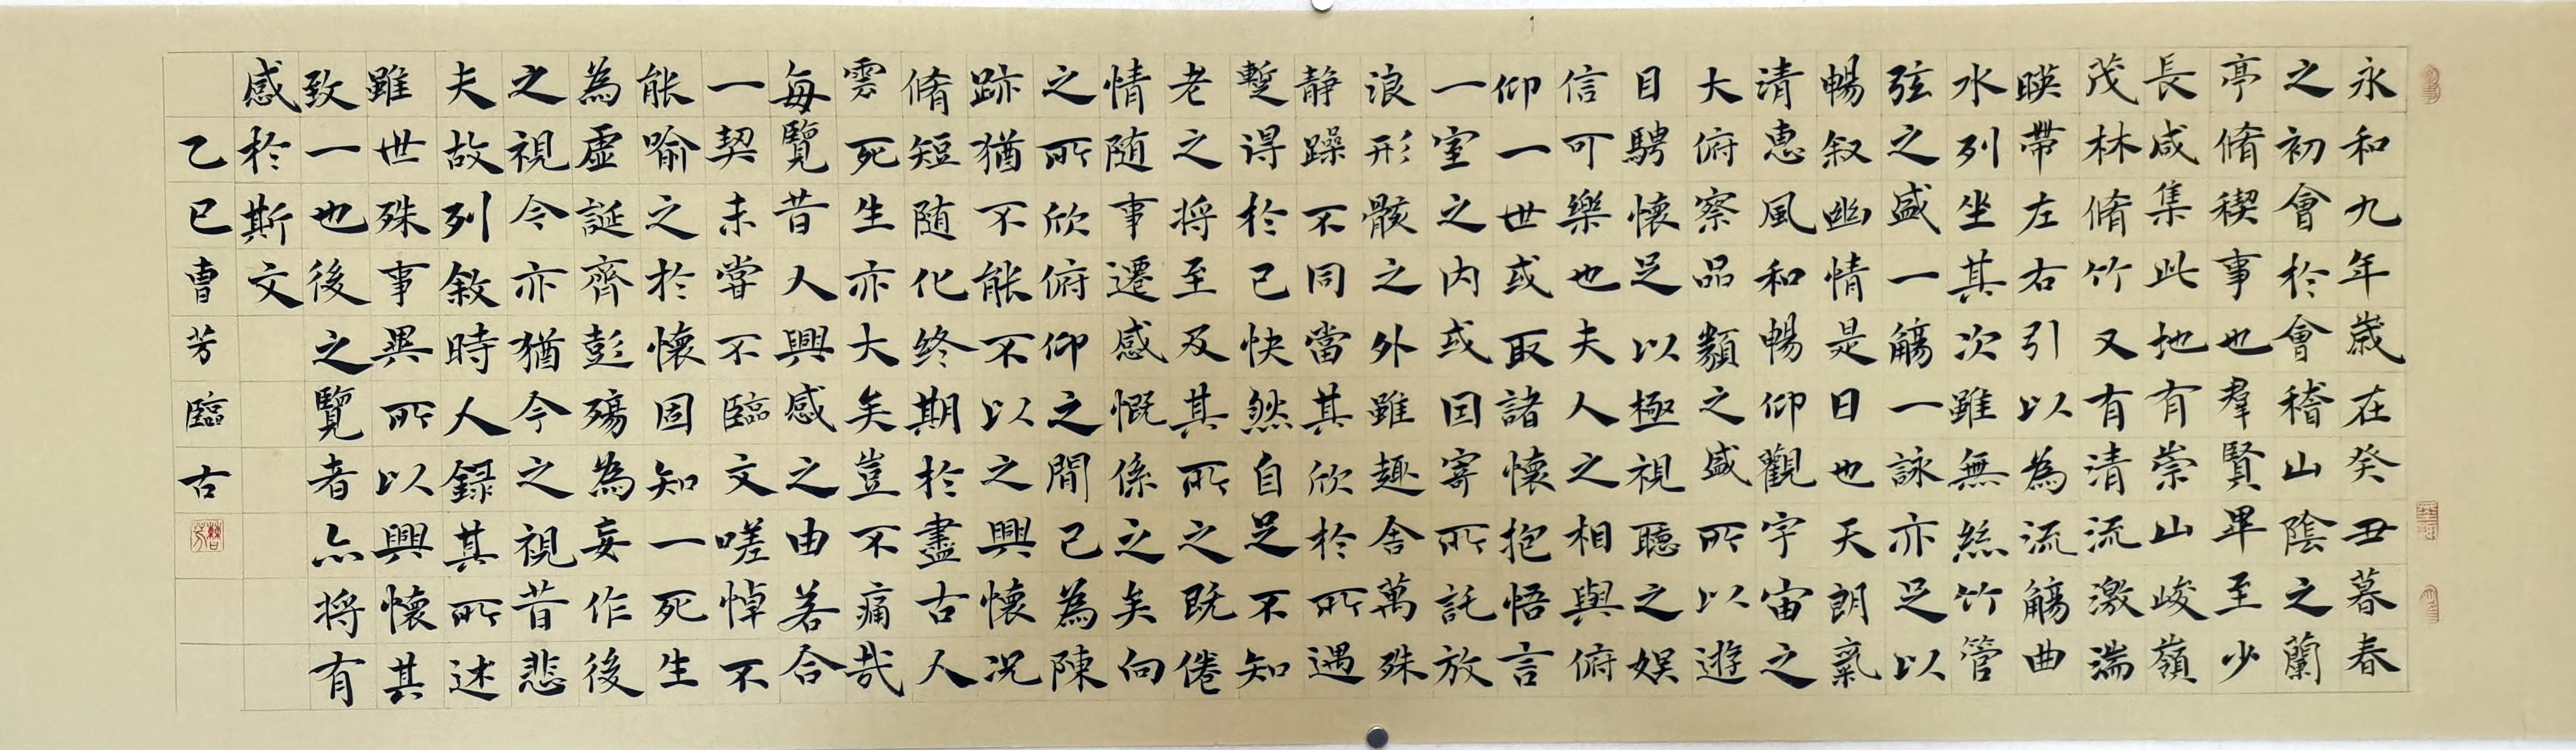 永和九年歲在癸丑暮春
之初會於會稽山陰之蘭
亭脩禊事也羣賢畢至少
長咸集此地有崇山峻嶺
茂林脩竹又有清流激湍
暎帶左右引以為流觴曲
水列坐其次雖無絲竹管
弦之盛一觴一詠亦足以
暢叙幽情是日也天朗氣
清惠風和暢仰觀宇宙之
大俯察品類之盛所以遊
目騁懷足以極視聽之娛
信可樂也夫人之相與俯
仰一世或取諸懷抱悟言
一室之内或因寄所託放
浪形骸之外雖趣舍萬殊
静躁不同當其欣於所遇
蹔得於己快然自足不知
老之将至及其所之既倦
情随事遷感慨係之矣向
之所欣俯仰之間已為陳
跡猶不能不以之興懷况
脩短随化终期於盡古人
雲死生亦大矣豈不痛哉
每覽昔人興感之由若合
一契未嘗不臨文嗟悼不
能喻之於懷固知一死生
為虛誕齊彭殤為妄作後
之視今亦猶今之視昔悲
夫故列敘時人録其所述
雖世殊事異所以興懷其
致一也後之覽者亦将有
感於斯文
乙巳曹芳臨古
曹芳